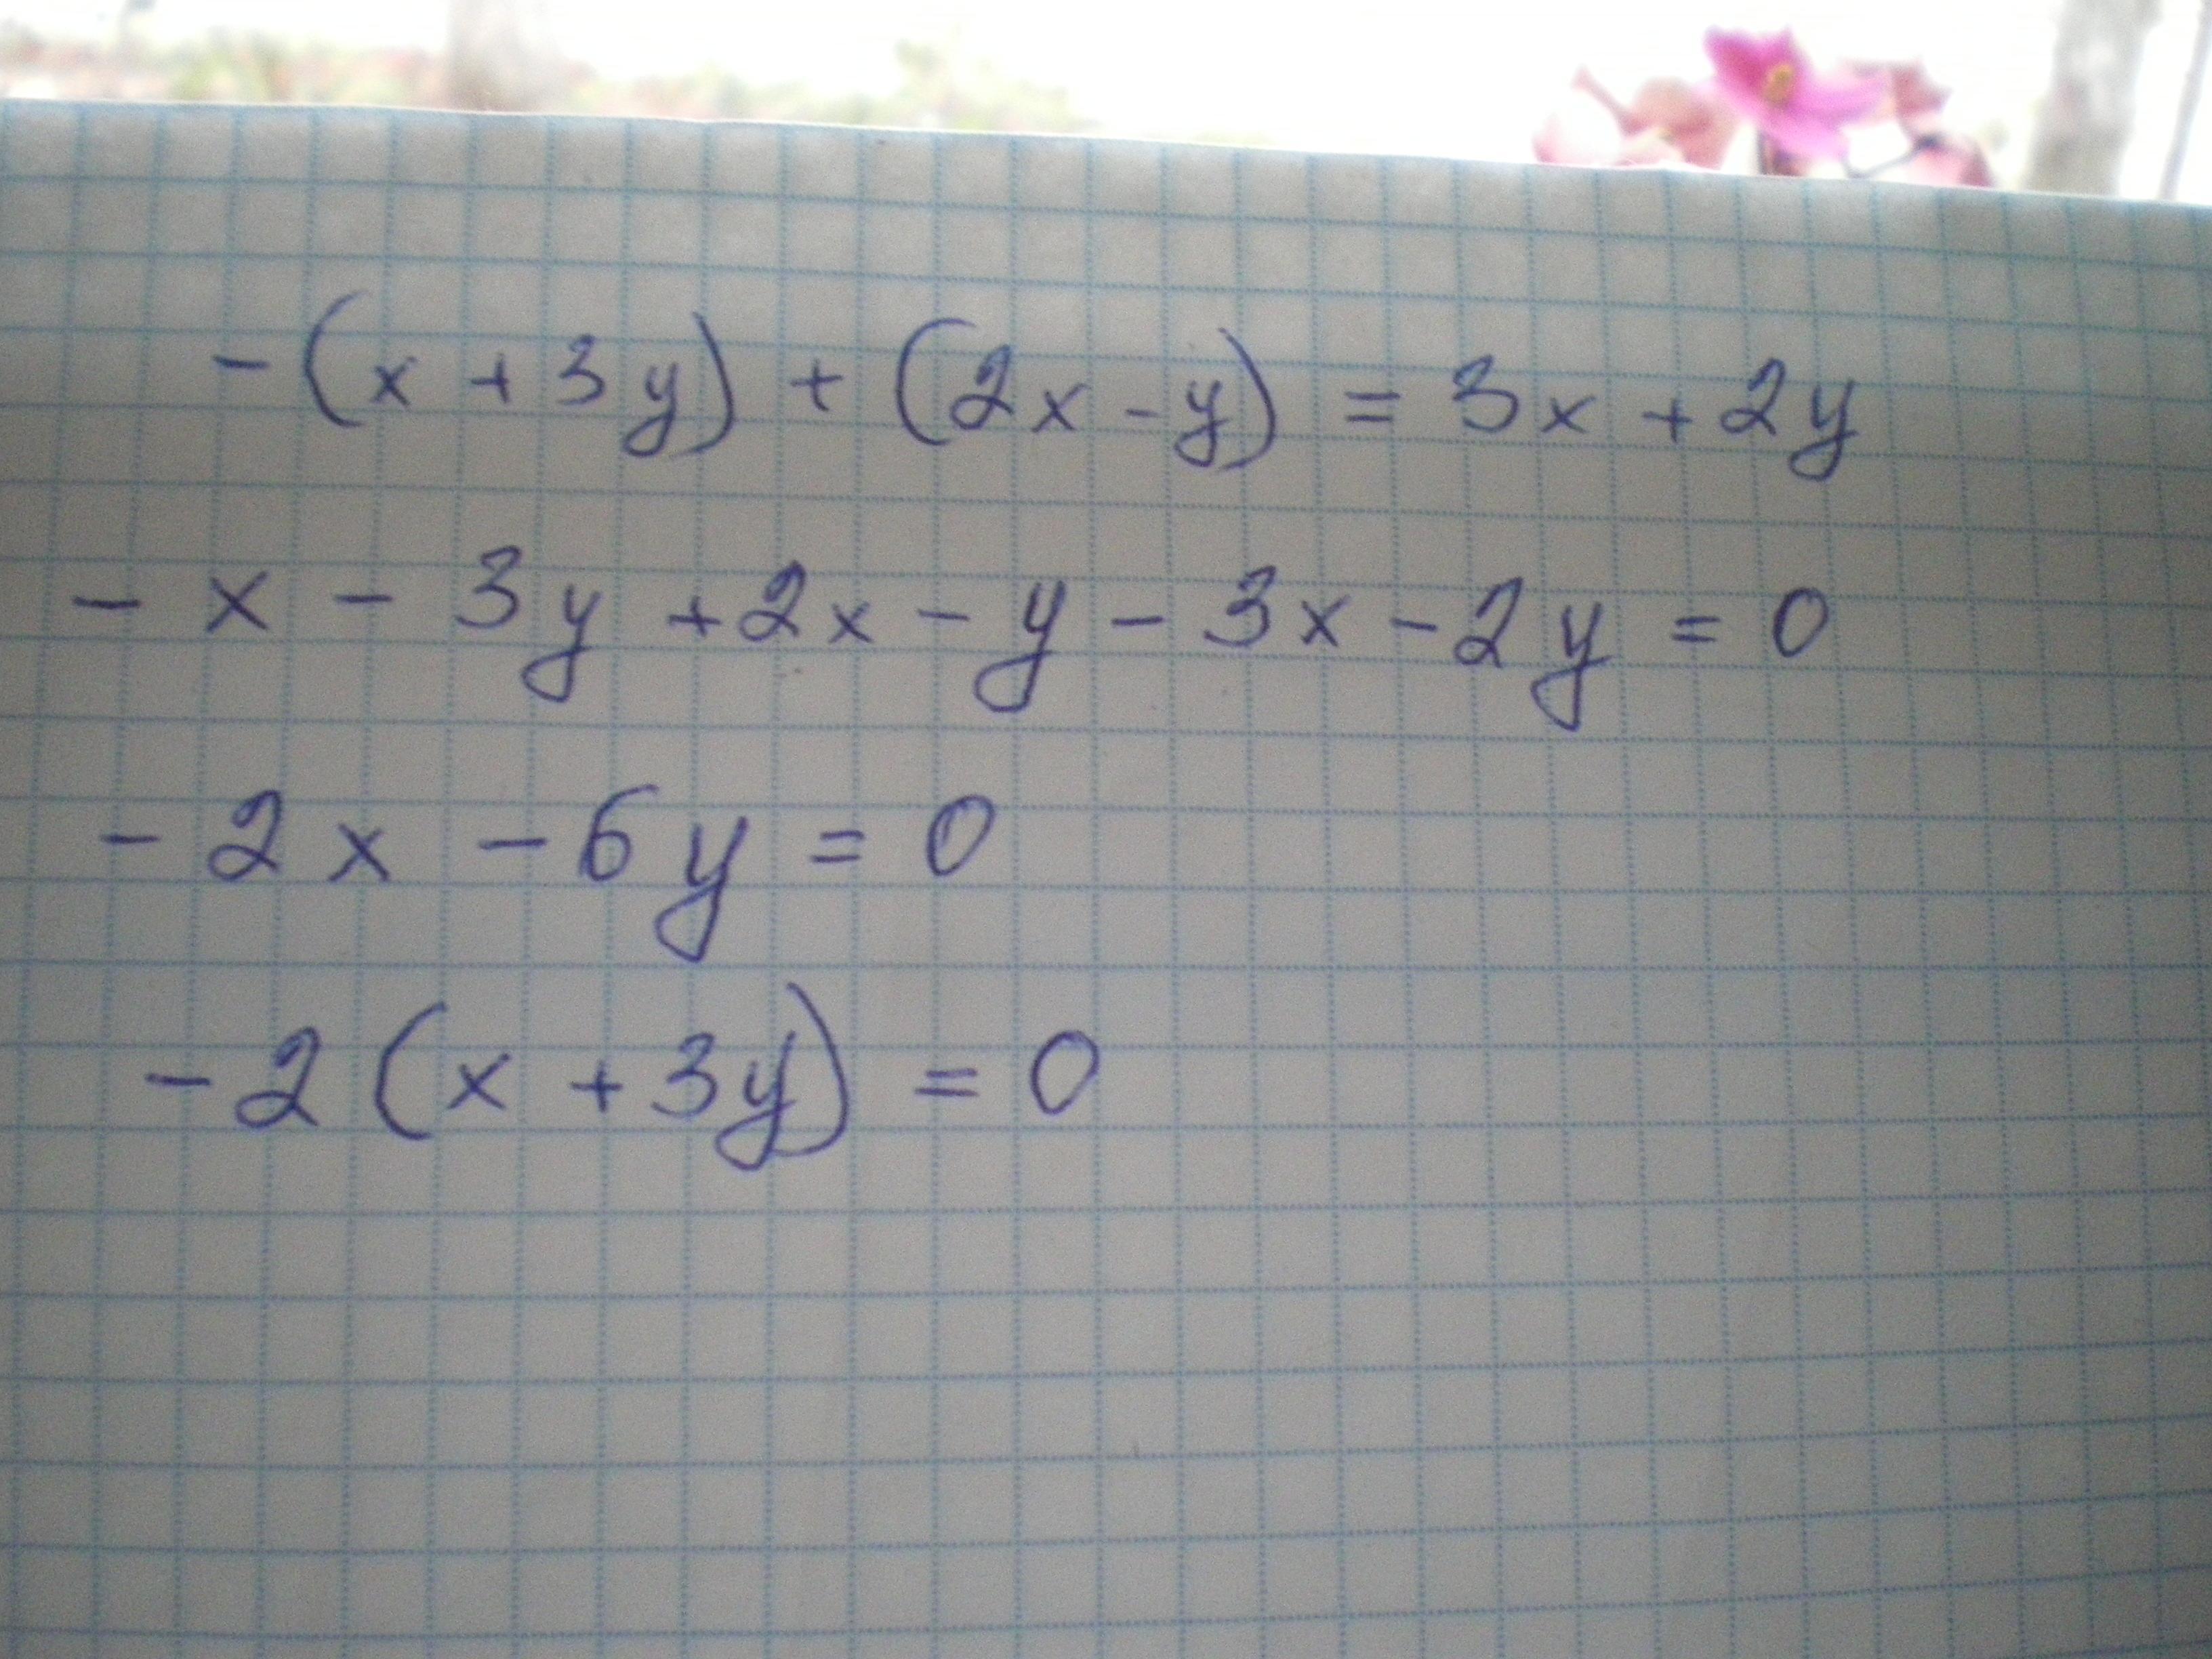 -(x+3y)+(2x-y)=3x+2y
-x-3y+2x-y-3x-2y=0
-2x-6y=0
-2(x+3y)=0